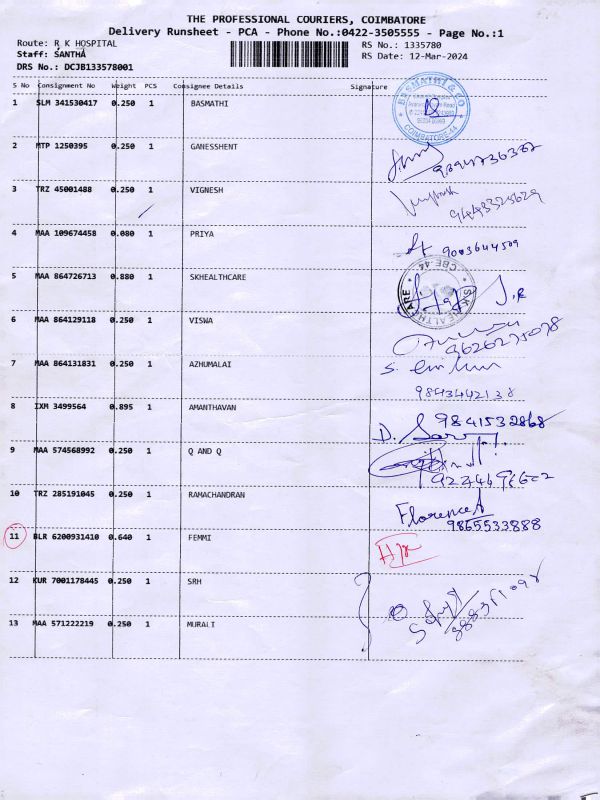 THE PROFESSIONAL COURIERS, COIMBATORE
Delivery Runsheet - PCA - Phone No.:0422-3505555 - Page No.:1
Route: R K HOSPITAL
RS No.: 1335780
Staff: SANTHA
RS Date: 12-Mar-2024
DRS No.: DCJB133578001
S No Consignment No Weight PCS Consignee Details Signature
1 SLM 341530417 0.250 1 BASMATHI
BASMATHI & CO
COIMBATORE-44
2 MTP 1250395 0.250 1 GANESSHENT
3 TRZ 45001488 0.250 1 VIGNESH
9443325629
4 MAA 109674458 0.080 1 PRIYA
9003644509
5 MAA 864726713 0.880 1 SKHEALTHCARE
CBE-44
6 MAA 864129118 0.250 1 VISWA
9626275078
7 MAA 864131831 0.250 1 AZHUMALAI
9843442138
8 IXM 3499564 0.895 1 AMANTHAVAN
9841532868
9 MAA 574568992 0.250 1 Q AND Q
10 TRZ 285191045 0.250 1 RAMACHANDRAN
Florence A
9865533888
11 BLR 6200931410 0.640 1 FEMMI
12 KUR 7001178445 0.250 1 SRH
13 MAA 571222219 0.250 1 MURALI